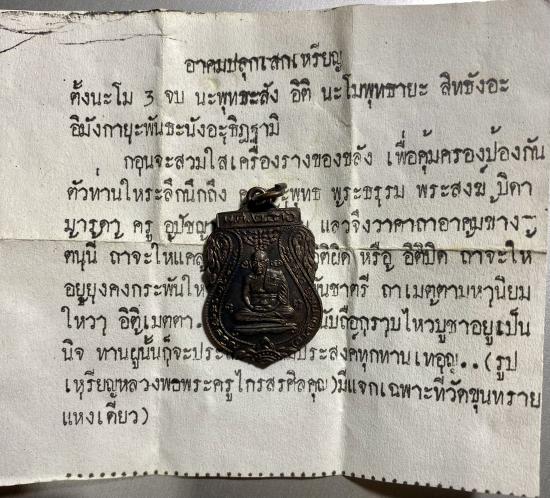 อาคมปลุกเสกเหรียญ
ตั้งนะโม 3 จบ นะพุทธะสัง อิติ นะโมพุทธายะ สิทธังอะ
อิมังกายะพันธะนังอะธิฏฐามิ
กอนจะสวมใสเครื่องรางของขลัง เพื่อคุ้มครองป้องกัน
ตัวท่านใหระลึกนึกถึง พุทธ พระธรรม พระสงฆ์ บิดา
มารดา ครู อุปัชฌา แลวจึงวาคาถาอาคมขาง
ตนนี้ ถาจะใหแคล หรือ อิติปิด ถาจะให
อยูยงคงกระพันให พันชาตรี ถาเมตตามหานิยม
ใหวา อิติเมตตา. นับถือกราบไหวบูชาอยูเป็น
นิจ ทานผูนั้นก็จะประ ประสงค์ทุกทานเทอญ..(รูป
เหรียญหลวงพอพระครูไกรสรศิลคุณ)มีแจกเฉพาะที่วัดขุนทราย
แหงเดียว)